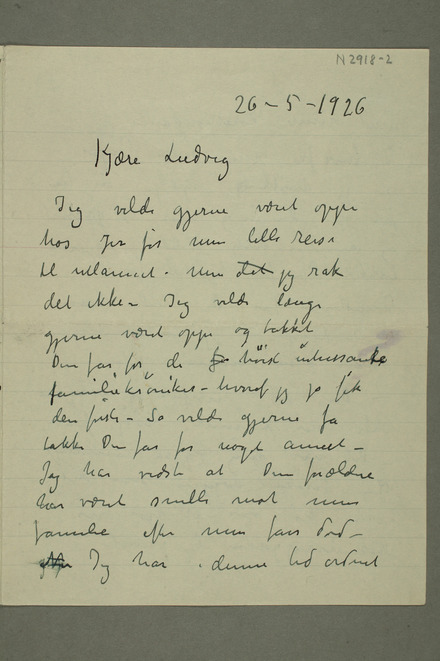 N2918-2
26-5-1926
Kjære Ludvig
Jeg vilde gjerne været oppe
hos Jer før min lille reise
til utlandet. Men det jeg rak
det ikke - Jeg vilde længe
gjerne været oppe og takket
Din far for de høist interessante
familiekrøniker - hvoraf jeg jo fik
den første - Så vilde gjerne få
takke Din far for noget annet -
Jeg har vidst at Dine forældre
har været snille mot min
familie efter min fars død -
Jeg har i denne tid ordnet